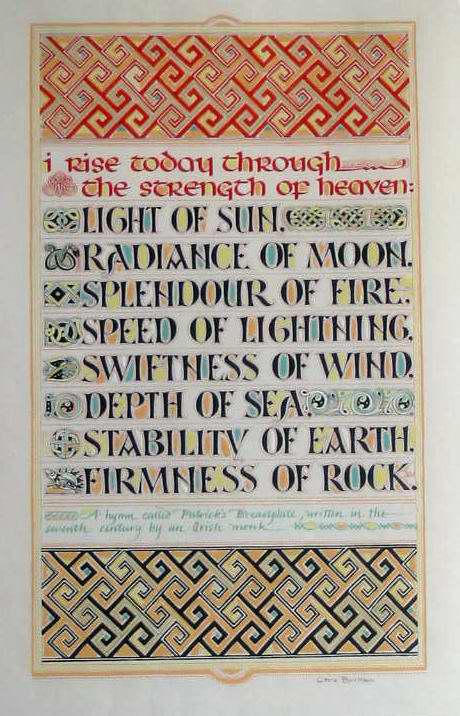 i rise today through
the strength of heaven:
LIGHT OF SUN.
RADIANCE OF MOON.
SPLENDOUR OF FIRE.
SPEED OF LIGHTNING.
SWIFTNESS OF WIND.
DEPTH OF SEA.
STABILITY OF EARTH.
FIRMNESS OF ROCK.
A hymn called Patrick's Breastplate, written in the
seventh century by an Irish monk